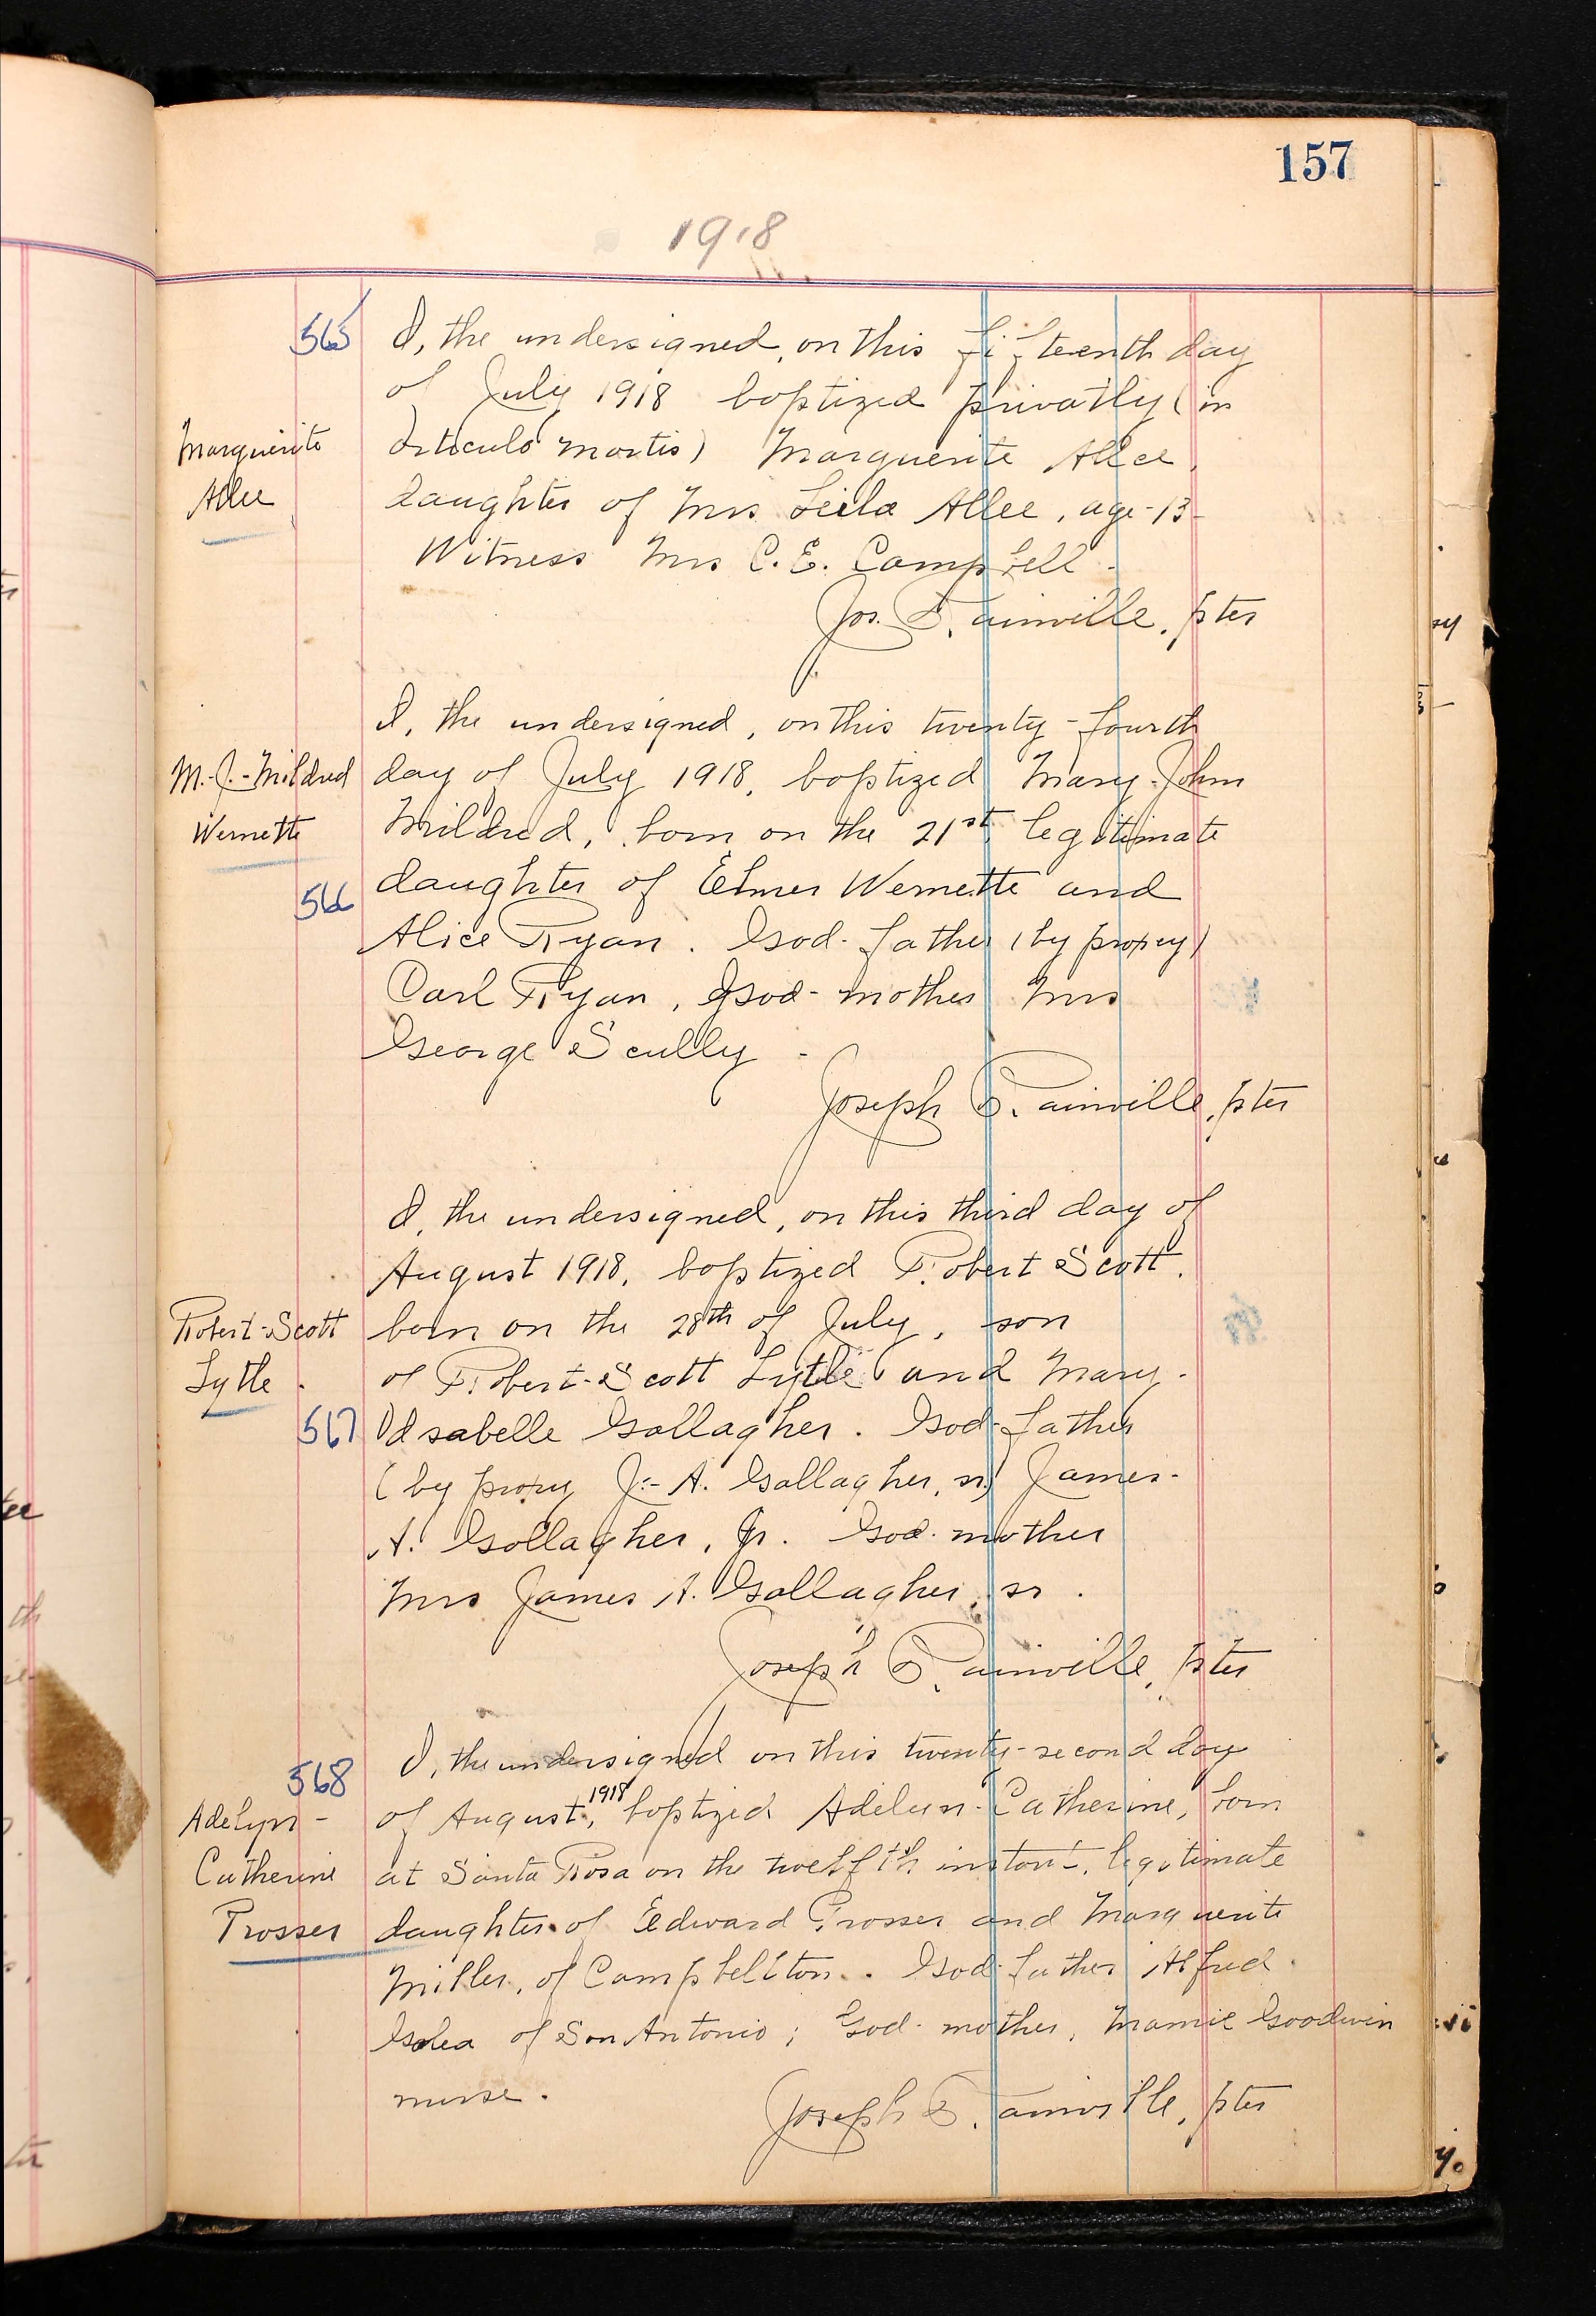 157
1918
565
I, the undersigned, on this fifteenth day
of July 1918 baptized privatly (in
Marguerite
articulo mortis) Marguerite Allee,
Allee
daughter of Mrs Leila Allee, age-13-
Witness Mrs C. E. Campbell.
Jos. Rainville, pter
I, the undersigned, on this twenty-fourth
M.-J.-Mildred
day of July 1918, baptized Mary-John
Wernette
Mildred, born on the 21st, legitimate
566
daughter of Elmer Wernette and
Alice Ryan. God-father (by proxy)
Carl Ryan, God-mother Mrs
George Scully -
Joseph Rainville, pter
I, the undersigned, on this third day of
August 1918, baptized Robert Scott,
Robert-Scott
born on the 28th of July, son
Lytle.
of Robert-Scott Lytle and Mary-
567
Isabelle Gallagher. God-father
(by proxy J.-A. Gallagher, sr) James-
A. Gallagher, Jr. God-mother
Mrs James A. Gallagher, sr.
Joseph Rainville, pter
568
I, the undersigned on this twenty-second day
Adelyn-
of August, 1918 baptized Adelyn-Catherine, born
Catherine
at Santa Rosa on the twelfth instant, legitimate
Prosser
daughter of Edward Prosser and Marguerite
Miller, of Campbellton. God-father Alfred
of San Antonio; God-mother, Mamie Goodwin
nurse.
Joseph Rainville, pter